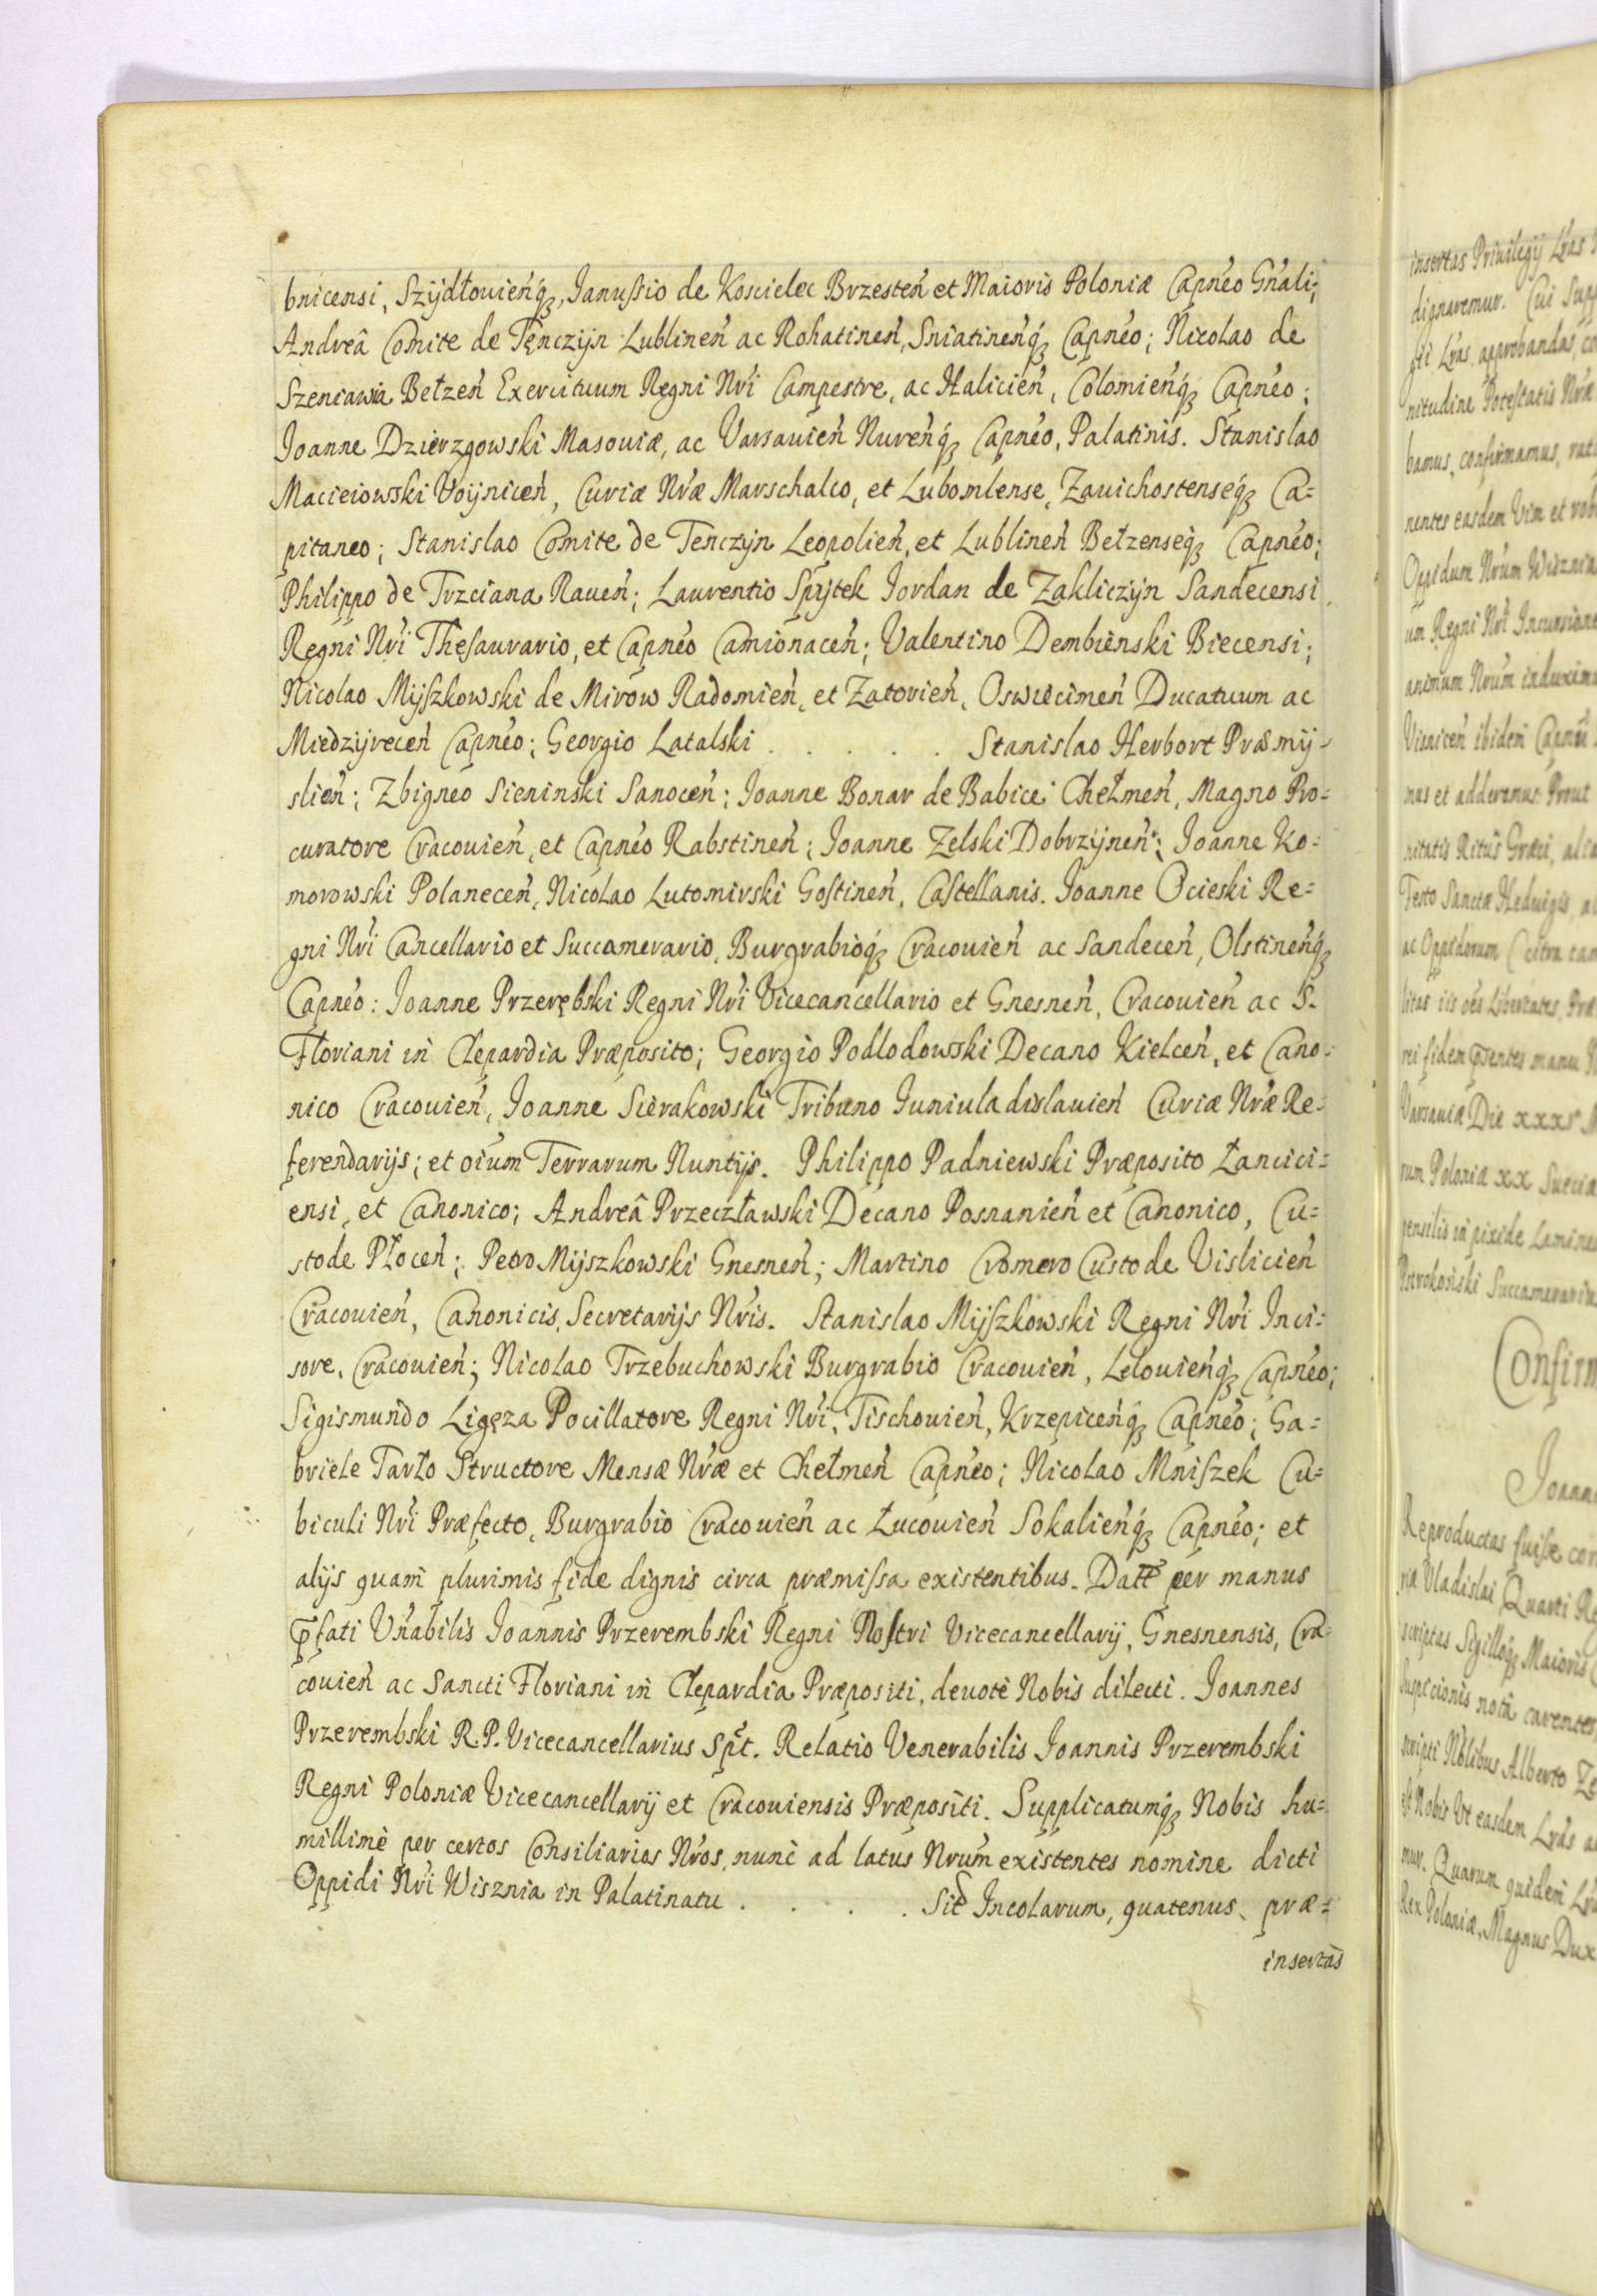 bnicensi, Szÿdłouień́q̨, Janussio de Koscielec Brzesteń et Maioris Poloniæ Capnéo Gńali;
Andreâ Comite de Tęnczÿn Lublineń ac Rohatineń, Sniatineńq̨ Capnéo; Nicolao de
Szeniawia Bełzeń Exercituum Regni Nr̃i Campestre, ac Halicień, Colomieńq̨ Capnéo;
Joanne Dzierzgowski Masouiæ, ac Varsauień Nureńq̨ Capnéo, Palatinis. Stanislao
Macieiowski Voÿniceń, Curiæ Nr̃æ Marschalco, et Lubomlense, Zauichostenseq̨ Ca=
pitaneo; Stanislao Comite de Tenczÿn Leopolień, et Lublineń Bełzenseq̨ Capnéo;
Philippo de Trzciana Raueń; Laurentio Spÿtek Jordan de Zakliczÿn Sandecensi
Regni Nr̃i Thesaurario, et Capnéo Camionaceń; Valentino Dembienski Biecensi;
Nicolao Mÿszkowski de Mirow Radomień, et Zatorień, Oswiecimeń Ducatuum ac
Miedzÿreceń Capnéo; Georgio Latalski . . . . . Stanislao Herbort Præmÿ-
slień; Zbignéo Sieninski Sanoceń; Joanne Bonar de Babice Chełmeń, Magno Pro=
curatore Cracouień, et Capnéo Rabstineń; Joanne Zelski Dobrzÿneń; Joanne Ko=
morowski Polaneceń, Nicolao Lutomirski Gostineń, Castellanis. Joanne Ocieski Re=
gni Nr̃i Cancellario et Succamerario, Burgrabioq̨ Cracouień ac Sandeceń, Olstineńq̨
Capnéo: Joanne Przerębski Regni Nr̃i Vicecancellario et Gnesneń, Cracouień ac S.
Floriani in Clepardia Præposito; Georgio Podlodowski Decano Kielceń, et Cano=
nico Cracouień, Joanne Sierakowski Tribuno Juniuladislauień Curiæ Nr̃æ Re=
ferendarijs; et oium Terrarum Nuntijs. Philippo Padniewski Præposito Łancici=
ensi, et Canonico; Andreâ Przecztawski Decano Posnanień et Canonico, Cu=
stode Płoceń; Petro Mÿszkowski Gnesneń; Martino Cromero Custode Vislicień
Cracouień, Canonicis, Secretarijs Nr̃is. Stanislao Mÿszkowski Regni Nr̃i Inci=
sore, Cracouień; Nicolao Trzebuchowski Burgrabio Cracouień, Lelouieńq̨ Capnéo;
Sigismundo Ligęza Pocillatore Regni Nr̃i, Tischouień, Krzepiceńq̨ Capnéo; Ga=
briele Tarło Structore Mensæ Nr̃æ et Chełmeń Capnéo; Nicolao Mniszek Cu=
biculi Nr̃i Præfecto, Burgrabio Cracouień ac Łucouień Sokalieńq̨ Capnéo; et
alijs quam plurimis fide dignis circa præmissa existentibus. Datt̃ per manus
p̃fati Vñabilis Joannis Przerembski Regni Nostri Vicecancellarij, Gnesnensis, Cra=
couień ac Sancti Floriani in Clepardia Præpositi, deuotè Nobis dilecti. Joannes
Przerembski R.P. Vicecancellarius Sp̃t. Relatio Venerabilis Joannis Przerembski
Regni Poloniæ Vicecancellarij et Cracouiensis Præpositi. Supplicatumq̨ Nobis hu=
millimè per certos Consiliarios Nr̃os, nunc ad latus Nr̃um existentes nomine dicti
Oppidi Nr̃i Wisznia in Palatinatu . . . . . Sit̃ Incolarum, quatenus præ=
insertas
insertas Priuilegij Lr̃as
dignaremur. Cui Supp
gii Lr̃as approbandas, co
nitudine Potestatis Nr̃æ
bamus, confirmamus, rati
nentes easdem Vim et rob
Oppidum Nr̃um Wisznia
um Regni Nr̃i Incursione
animum Nr̃um induxim
ibidem Capnéi
mus et adderemus. Prout
nitatis Ritûs Græci, alia
Festo Sanctæ Heduigis a
ac Oppidorum Citra tam
litas iis oẽs Libertates, Præ
rei fidem p̃ntes manu N
Varsauiæ Die xxxi M
rum Poloniæ xx Sueciæ
pensilis in pixide Laminea
Succamerariu
Confirm
Joann
Reproductas fuisse cor
niæ Vladislai Quarti Re
scriptas Sigilloq̨ Maioris
Suspicionis notâ carentes
scripti Nolibus Alberto Ze
est Nobis Vt easdem Lr̃as a
mur. Quarum quidem Lr̃a
Rex Poloniæ, Magnus Dux